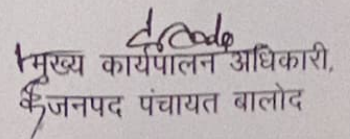 मुख्य कार्यपालन अधिकारी,
जनपद पंचायत बालोद